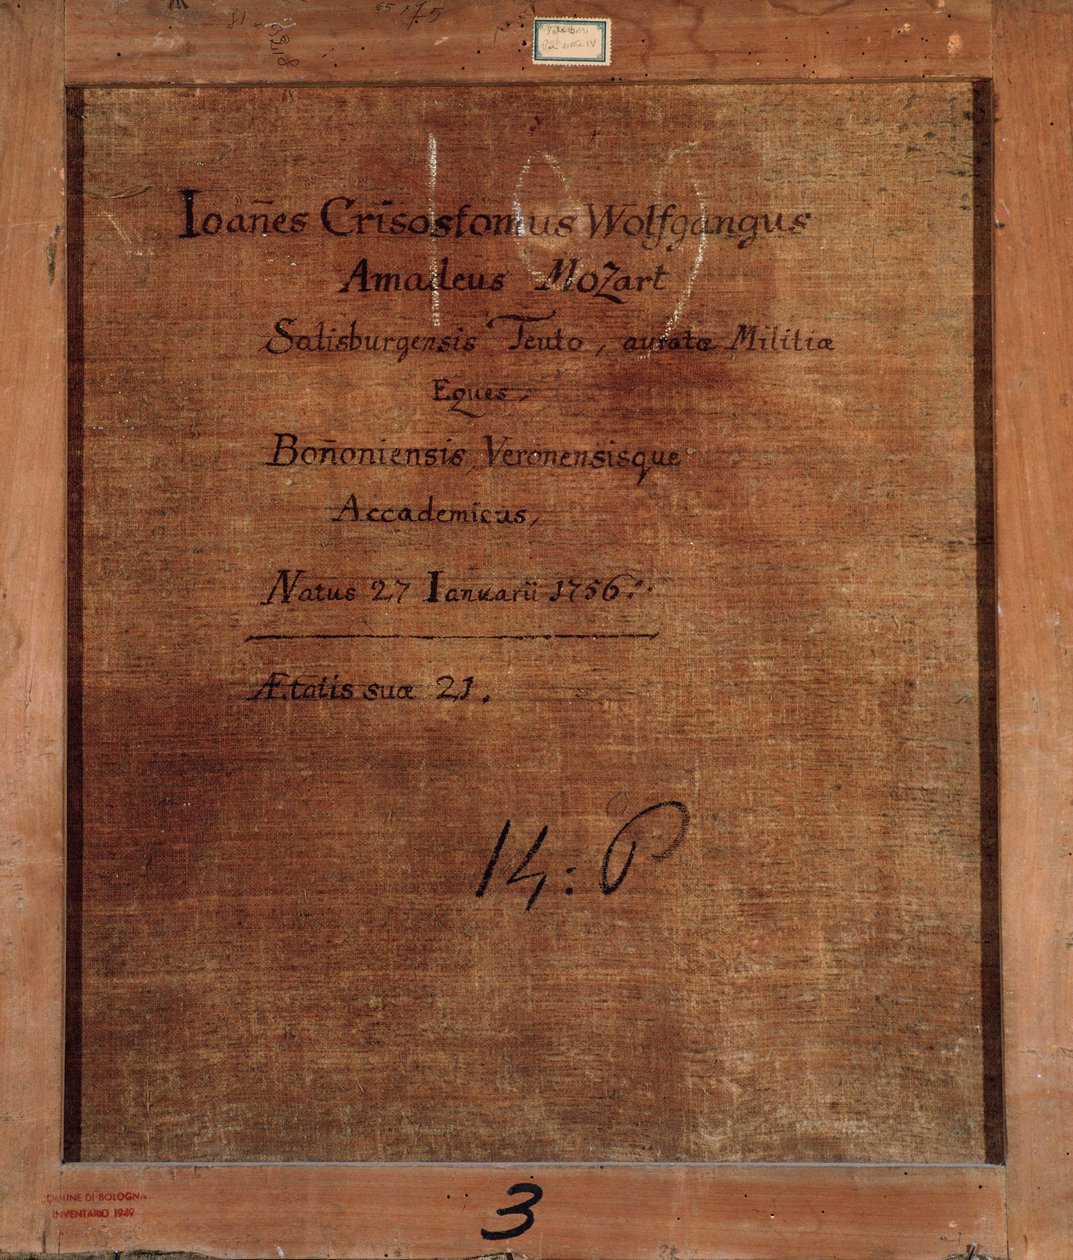 81 x
65 x 75
Ioan̄es Crisostomus Wolfgangus
Amadeus MoZart
Salisburgensis Teuto, auratæ Militiæ
Eques,
Bon̄oniensis Veronensisque
Accademicus,
Natus 27 Ianuarii 1756.
Ætatis suæ 21.
109
14: P
COMUNE DI BOLOGNA
INVENTARIO 1949
3